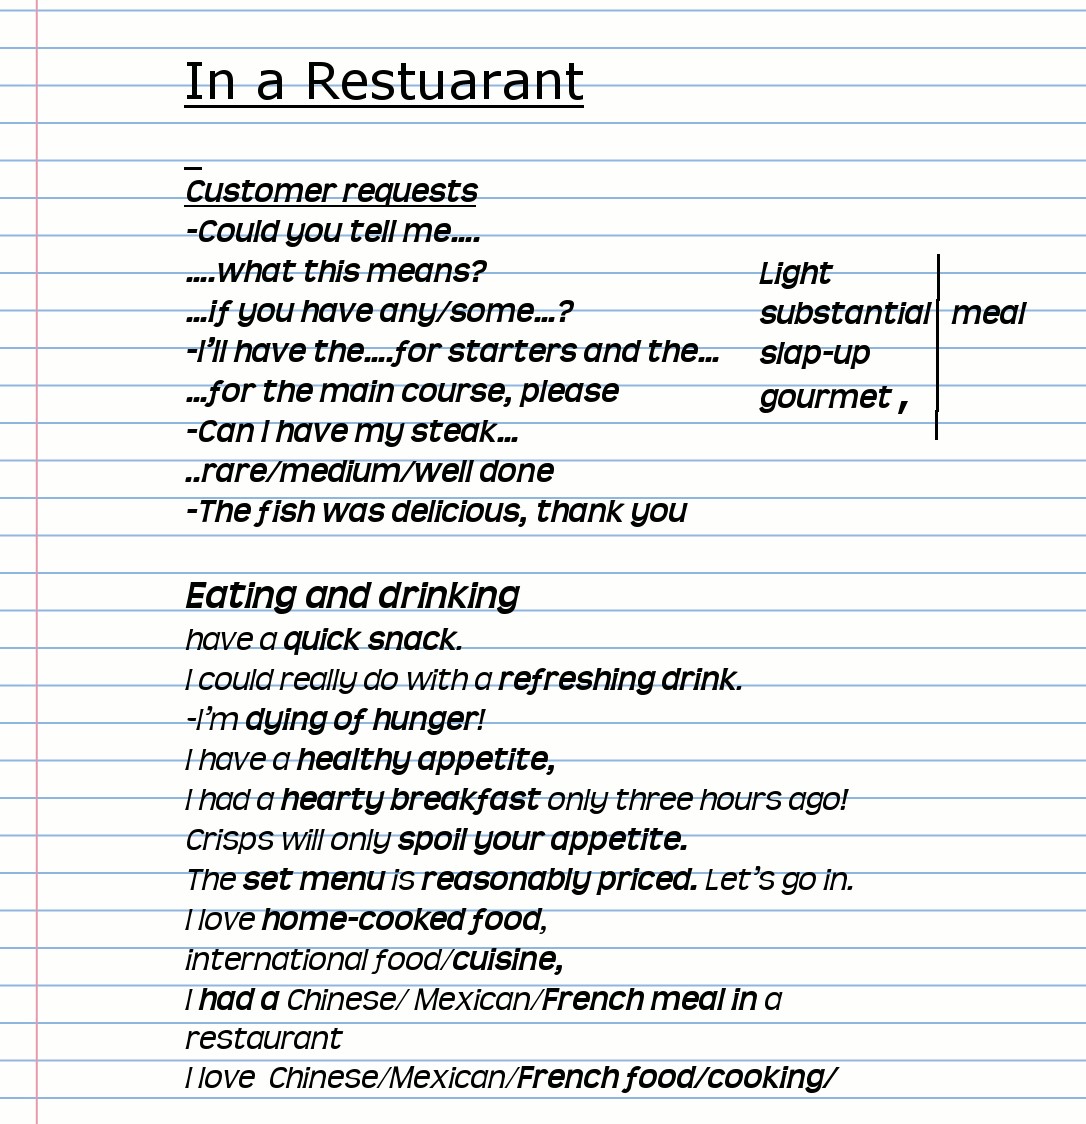 In a Restuarant
Customer requests
-Could you tell me....
....what this means?
...if you have any/some...?
-I’ll have the....for starters and the...
...for the main course, please
-Can I have my steak...
..rare/medium/well done
-The fish was delicious, thank you
Light
substantial meal
slap-up
gourmet ,
Eating and drinking
have a quick snack.
I could really do with a refreshing drink.
-I’m dying of hunger!
I have a healthy appetite,
I had a hearty breakfast only three hours ago!
Crisps will only spoil your appetite.
The set menu is reasonably priced. Let’s go in.
I love home-cooked food,
international food/cuisine,
I had a Chinese/ Mexican/French meal in a
restaurant
I love Chinese/Mexican/French food/cooking/